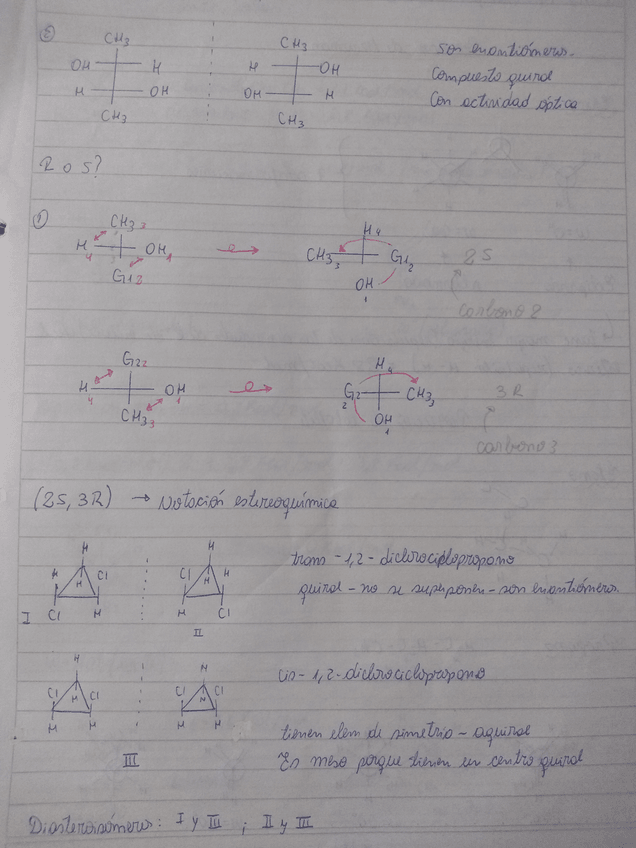 ②
CH3 CH3
OH H H OH
H OH OH H
CH3 CH3
Son enantiómeros.
Compuesto quiral
Con actividad óptica
R o S?
①
CH3 3
H 4 OH 1
G1 2
H4
CH3 3 G1 2
OH 1
2S
carbono 2
G2 2
H 4 OH 1
CH3 3
H4
G2 2 CH3 3
OH 1
3R
carbono 3
(2S, 3R) → Notación estereoquímica
H H
H H Cl Cl H H
Cl H H Cl
I II
trans-1,2-diclorociclopropano
quiral - no se superponen - son enantiómeros.
H H
Cl H Cl Cl H Cl
H H H H
III
cis-1,2-diclorociclopropano
tienen elem de simetría - aquiral
Es meso porque tienen un centro quiral
Diasteroisómeros: I y III ; II y III